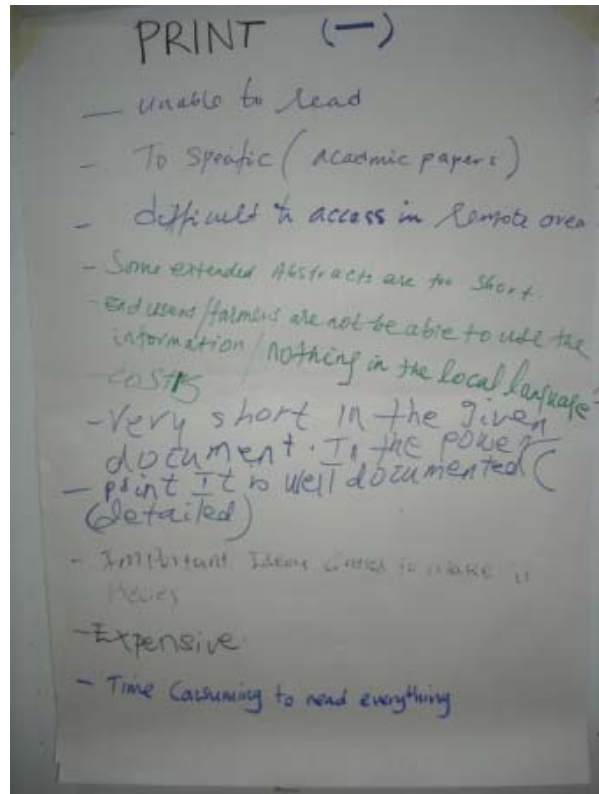 PRINT (—)
— Unable to read
- To Specific (acadmic papers)
- difficult to access in remote
- Some extended Abstracts are too short
- End users/farmers are not be able to use the
information/nothing in the local language
- costs
- Very short in the given
document. In the power
- point It is well documented (
(detailed)
- Important Ideas to make
- Expensive
- Time Consuming to read everything